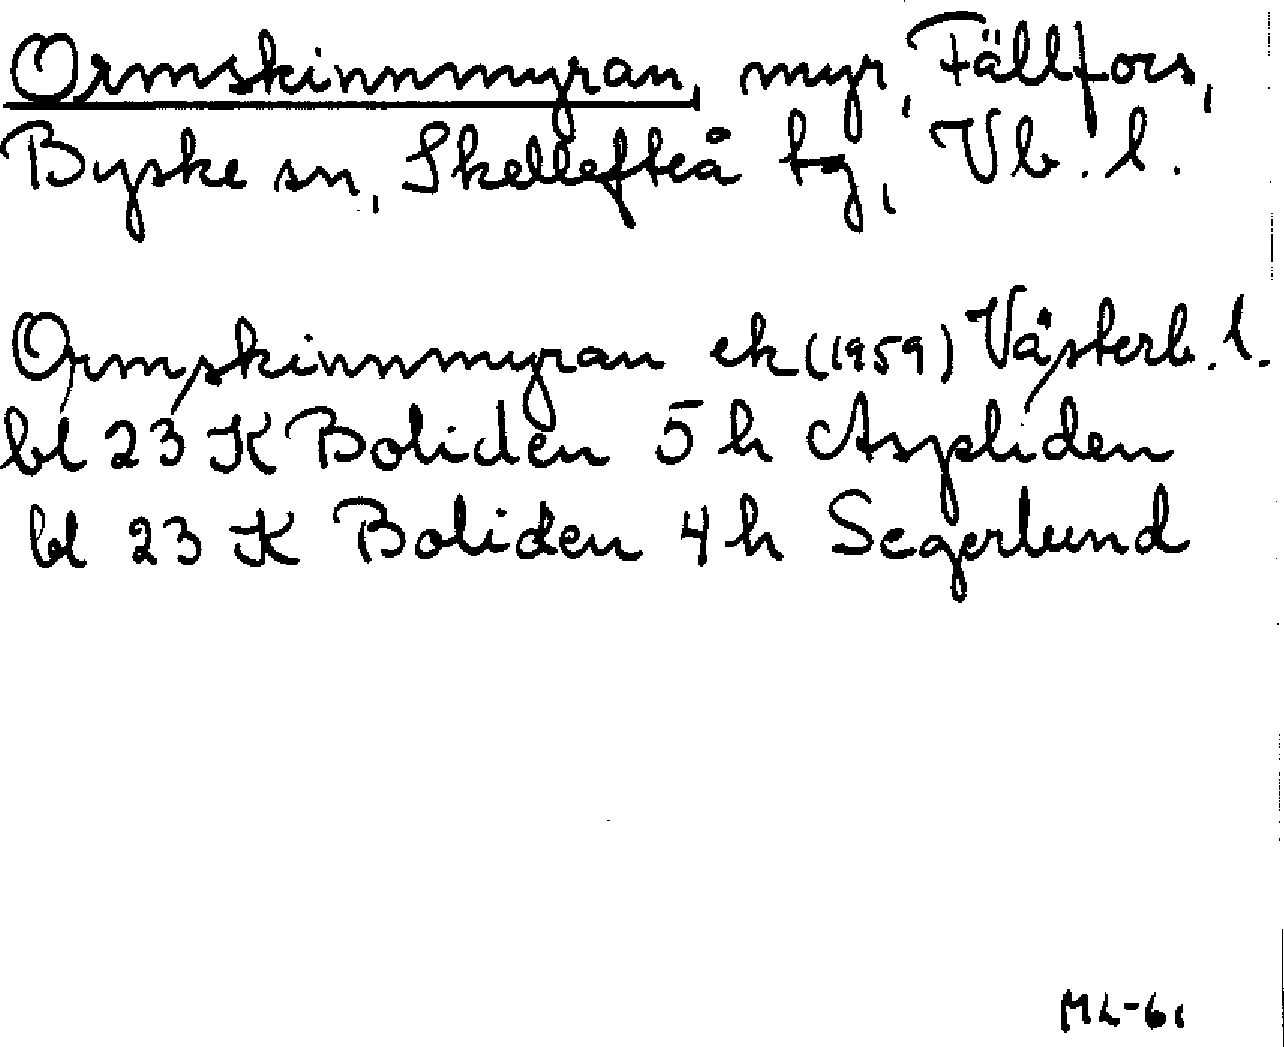 Ormskinnmyran, myr, Fällfors,
Byske sn, Skellefteå tg, Vb. l.
Ormskinnmyran ek (1959) Västerb. l.
bl 23 K Boliden 5 h Aspliden
bl 23 K Boliden 4 h Segerlund
ML-61